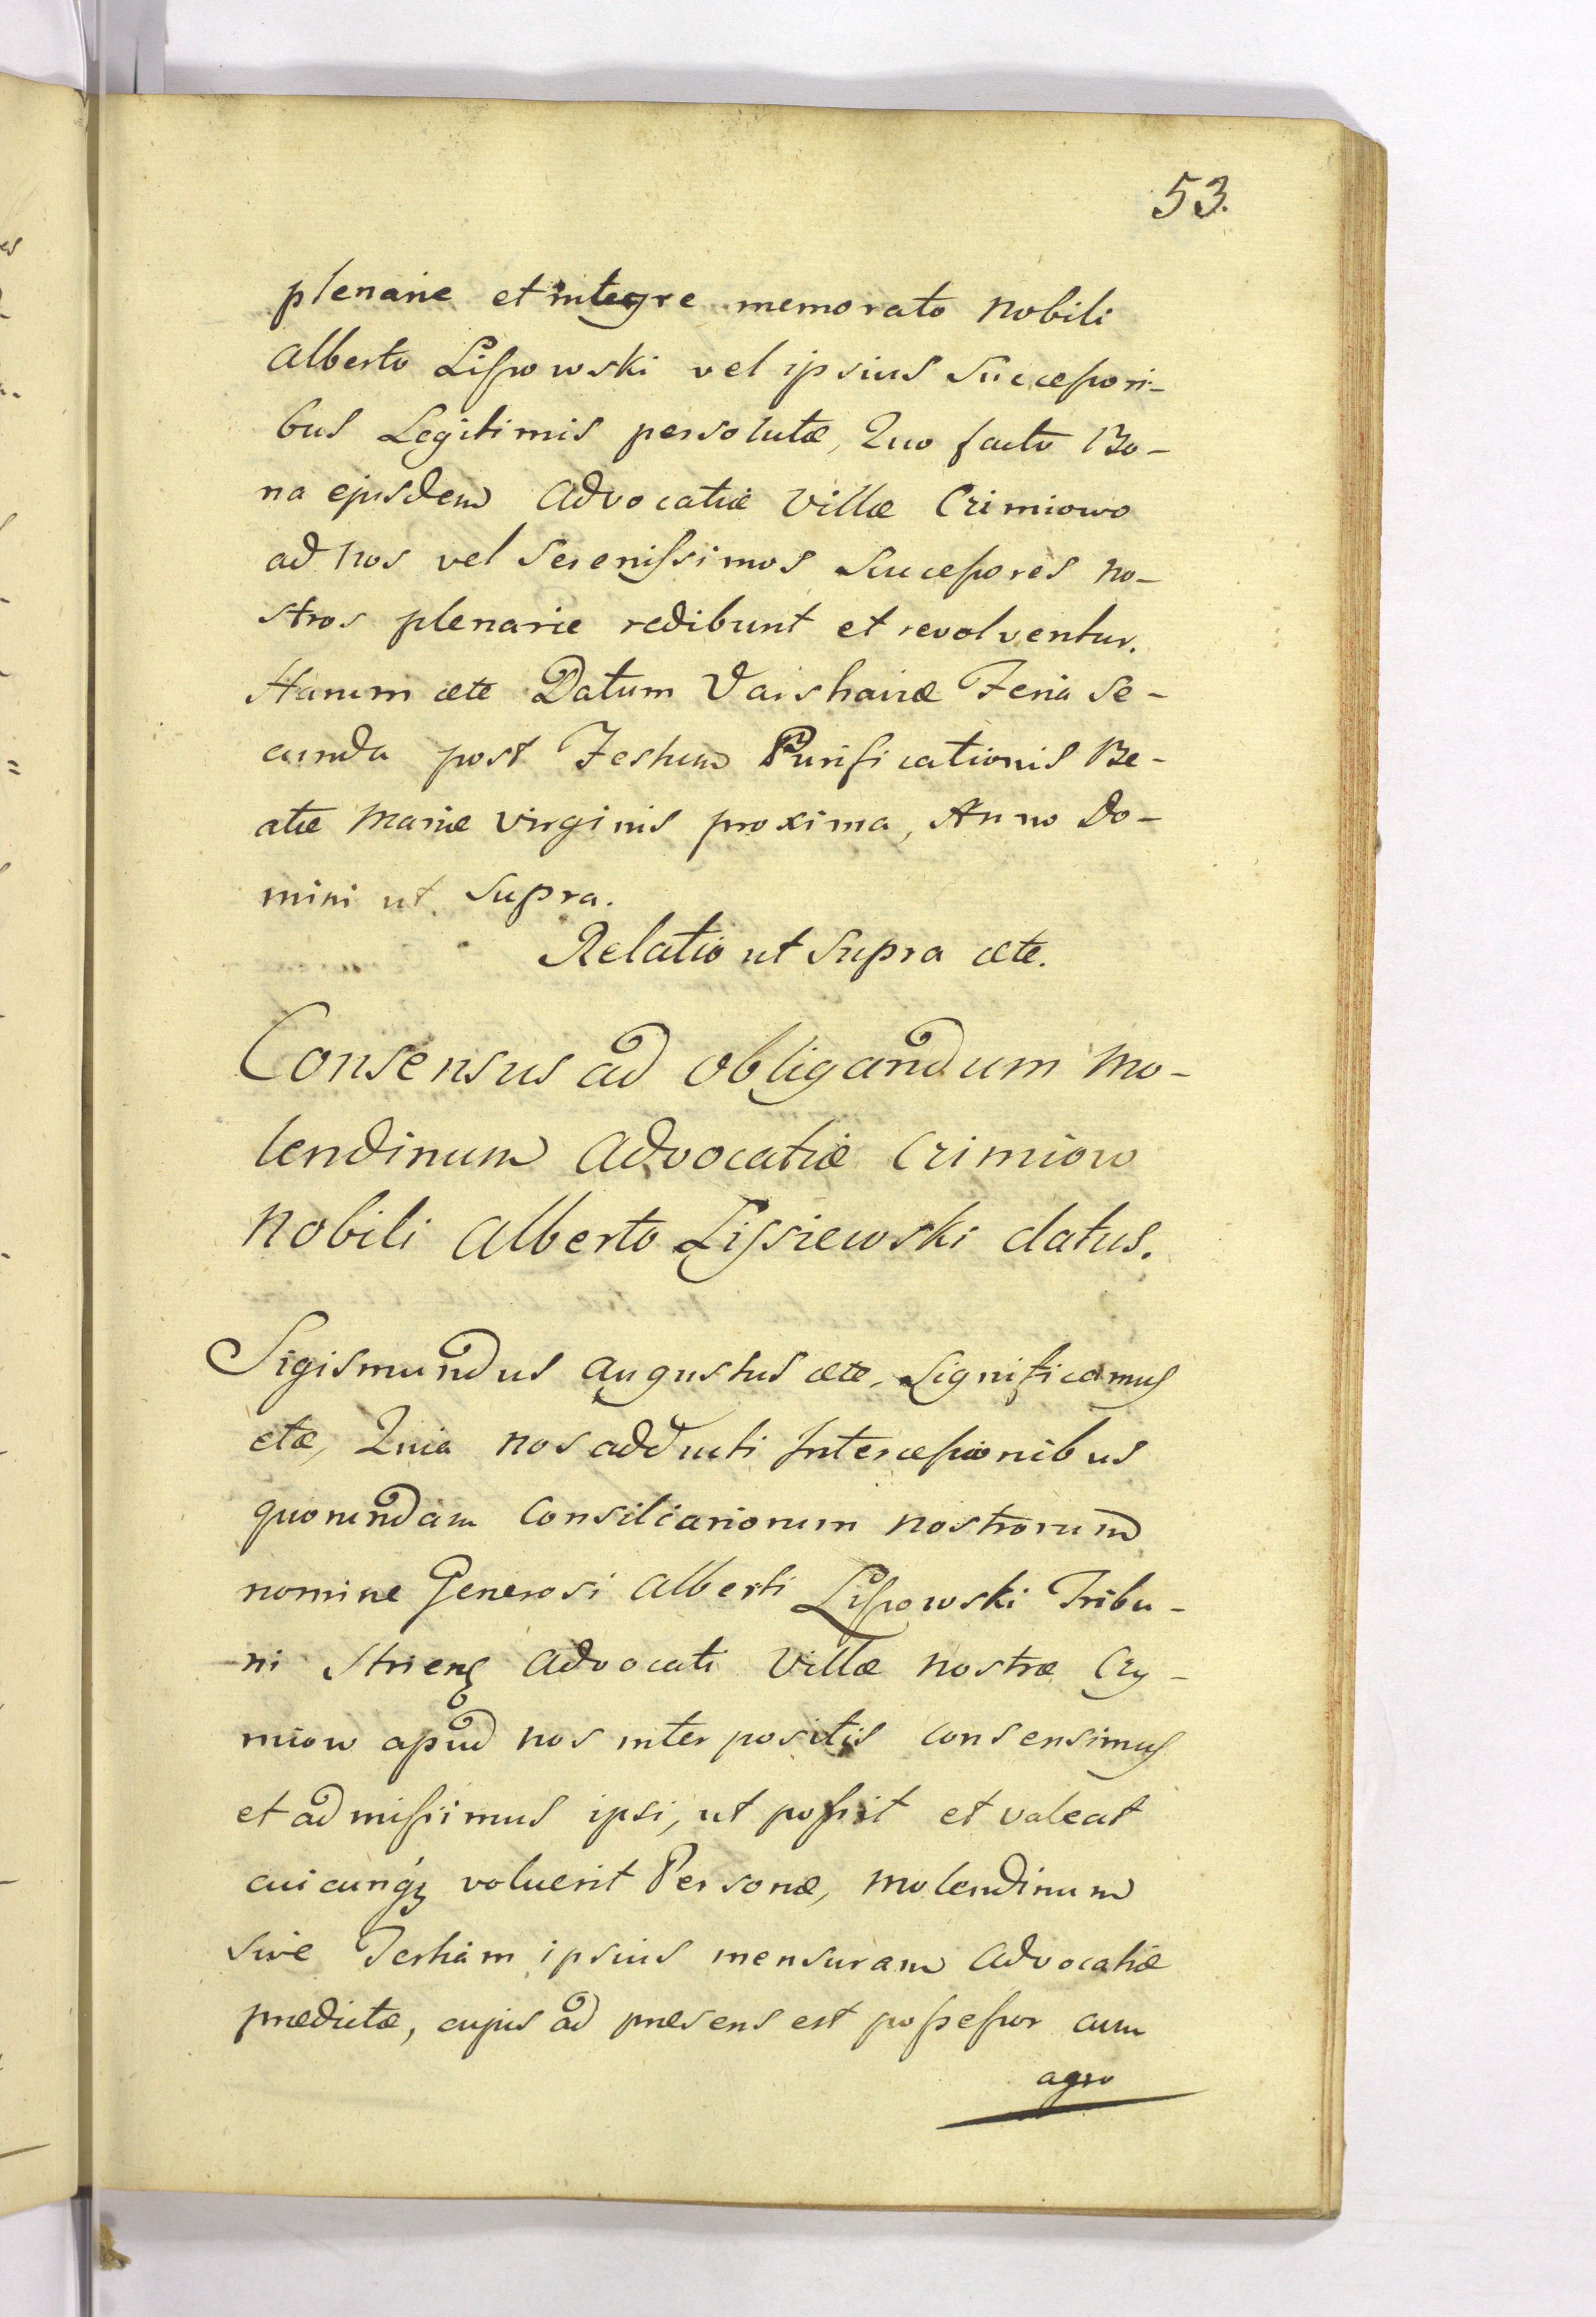 53.
plenarie et integre memorato Nobili
Alberto Lissowski vel ipsius Successori-
bus Legitimis persolutæ, Quo facto Bo-
na ejusdem Advocatiæ Villæ Crimiowo
ad Nos vel Serenissimos Successores no-
stros plenarie redibunt et revolventur.
Harum cete Datum Varshaviæ Feria Se-
cunda post Festum Purificationis Be-
atæ Mariæ Virginis proxima, Anno Do-
mini ut Supra.
Relatio ut Supra cete.
Consensus ad obligandum Mo-
lendinum Advocatiæ Crimiow
Nobili Alberto Lissiewski datus.
Sigismundus Augustus cete, Significamus
etc, Quia nos adducti Intercessionibus
quorundam Consiliariorum nostrorum
nomine Generosi Alberti Lissowski Tribu-
ni Advocati Villæ nostræ Cry-
miow apud nos interpositis consensimus
et admissimus ipsi, ut possit et valeat
cuicunqȝ voluerit Personæ, Molendinum
sive Tertiam ipsius mensuram Advocatiæ
prædictæ, cujus ad præsens est possessor cum
agro